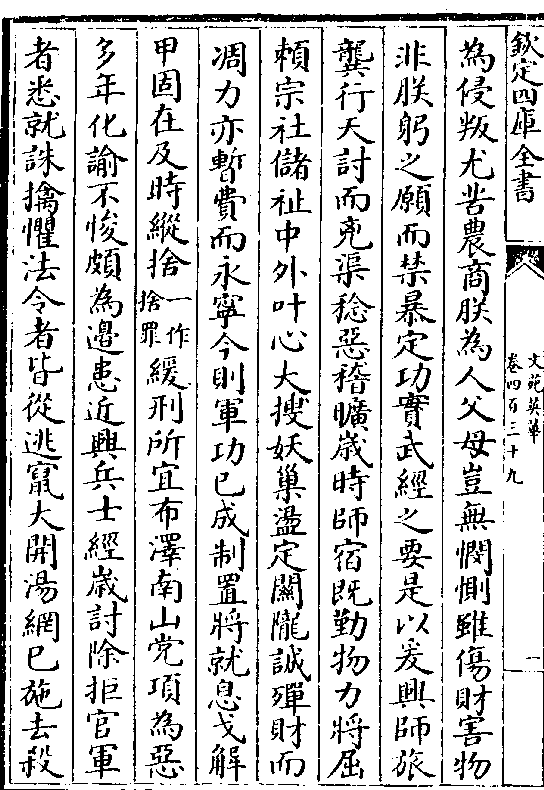 欽定四庫全書
文苑英華
卷四百三十九
一
為侵叛尤苦農商朕為人父母豈無憫惻雖傷財害物
非朕躬之願而禁暴定功實武經之要是以爰興師旅
龔行天討而兇渠稔惡稽曠歲時師宿既勤物力將屈
賴宗社儲祉中外叶心大搜妖巢盪定關隴誠殫財而
凋力亦暫費而永寧今則軍功已成制置將就息戈解
甲固在及時縱捨一作捨罪緩刑所宜布澤南山党項為惡
多年化諭不悛頗為邊患近興兵士經歲討除拒官軍
者悉就誅擒懼法令者皆從逃竄大開湯網已施去殺